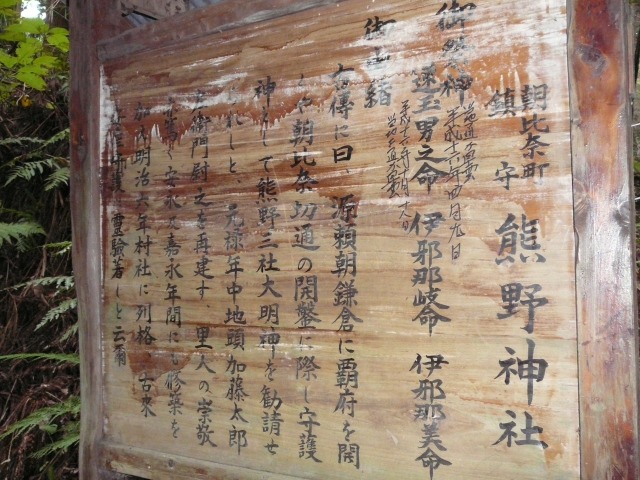 朝比奈町
鎮守 熊野神社
御祭神
速玉男之命 伊邪那岐命 伊邪那美命
御由緒
古傳に曰、源頼朝鎌倉に覇府を開
朝比奈切通の開鑿に際し守護
神として熊野三社大明神を勧請せ
られしと、元禄年中地頭加藤太郎
左衛門尉之を再建す、里人の崇敬
く安永及嘉永年間にも修築を
加え明治六年村社に列格、古来
霊験著しと云爾